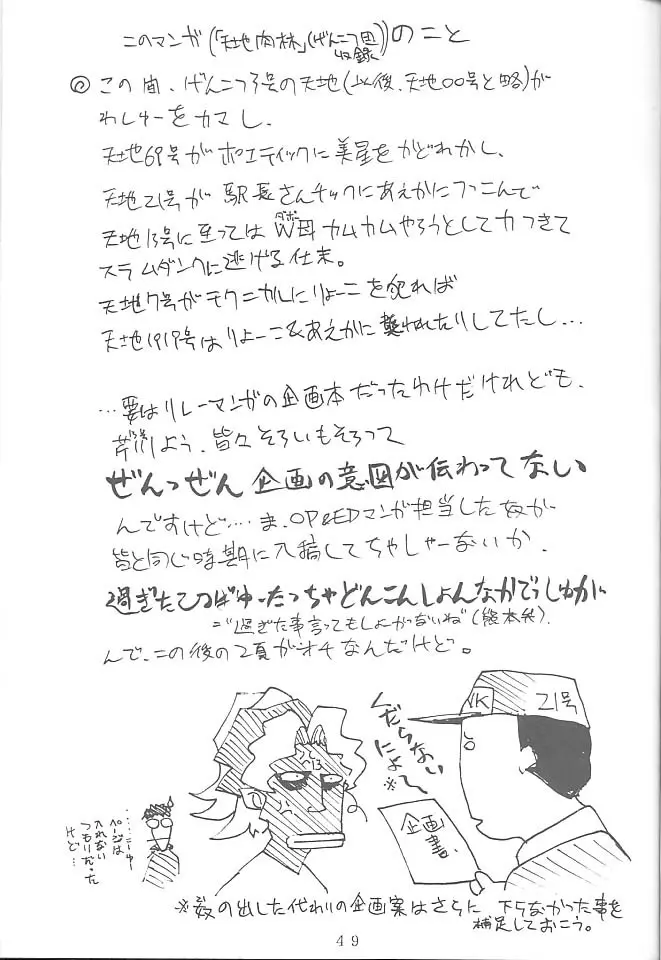 このマンガ(「天地肉林」(げんこつ団収録))のこと
◎この間、げんこつ3号の天地(以後、天地00号と略)が
わしゅーをカマし、
天地69号がポエティックに美星をかどわかし、
天地21号が駅長さんチックにあえかにつっこんで
天地13号に至ってはW母カムカムやろうとして力つきて
スラムダンクに逃げる仕末。
天地7号がテクニカルにりょーこを犯れば
天地1919号はりょーこ&あえかに襲われたりしてたし…
…要はリレーマンガの企画本だったわけだけれども、
よう、皆々そろいもそろって
ぜんっぜん企画の意図が伝わってない
んですけど…ま、OP&EDマンガ担当した奴が
皆と同じ時期に入稿してちゃしゃーないか、
過ぎたてつばゆったっちゃどんこんしょんなかでっしゅかに
="過ぎた事言ってもしょがないね"(熊本弁)、
んで、この後の2頁がオチなんだけど。
くだらないによって※
企画書、
VK
21号
13
……にゅー
ページは
入れない
つもりだった
けど…
※数の出した代わりの企画案はさらに下らなかった事を
補足しておこう。
49